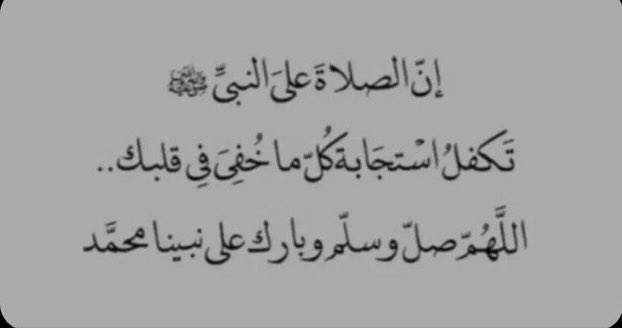 إنّ الصلاةَ علىَ النبيِّ ﷺ
تَكفلُ استجَابة كُلّ ما خُفِيَ فِي قلبك..
اللَّهُمّ صلّ وسلّم وبارك على نبينا محمَّد